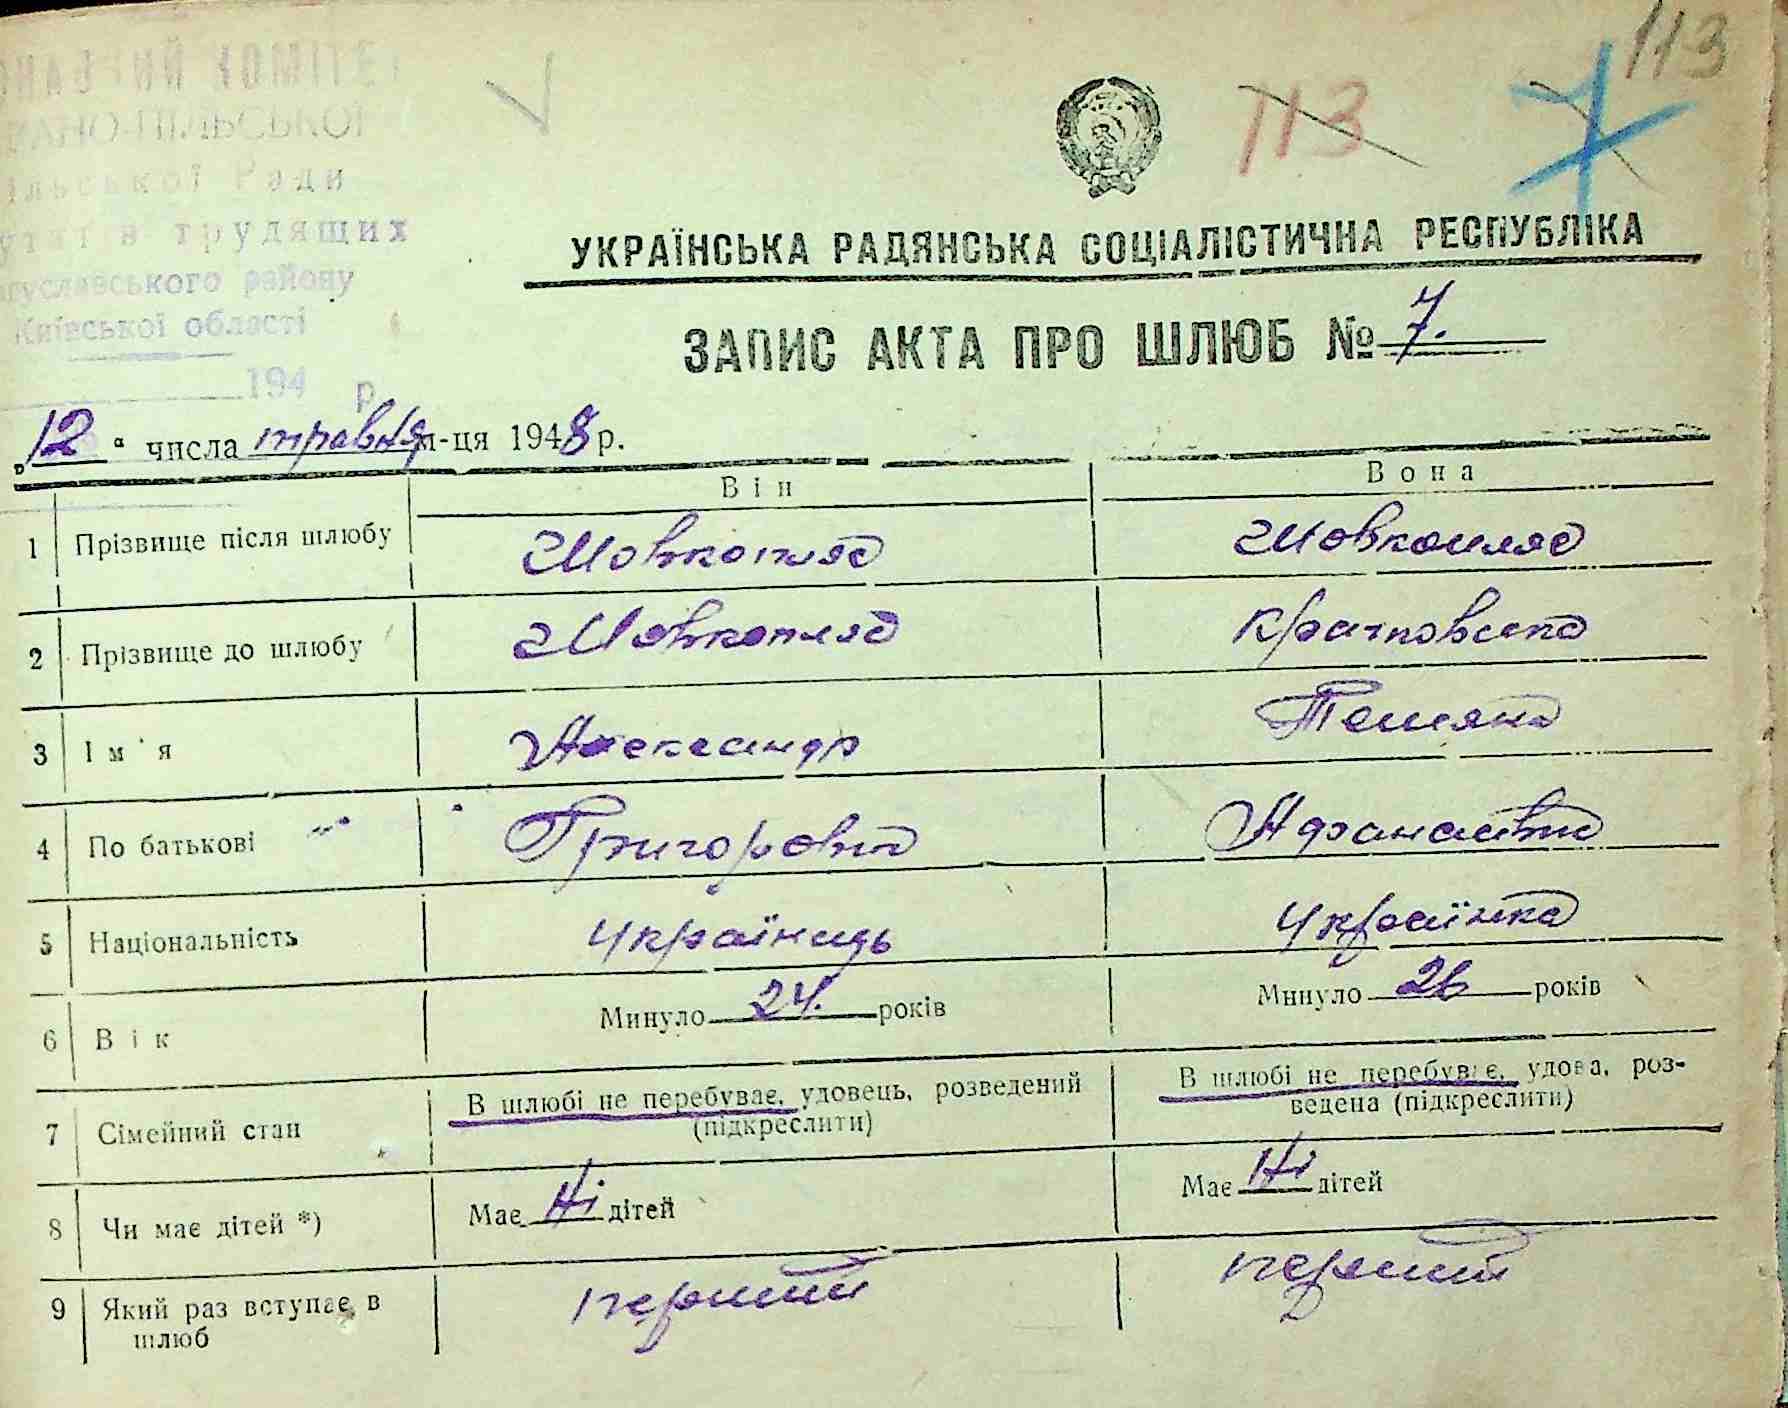 113
113
7
УКРАЇНСЬКА РАДЯНСЬКА СОЦІАЛІСТИЧНА РЕСПУБЛІКА
ЗАПИС АКТА ПРО ШЛЮБ № 7.
Ради
трудящих
району
Київської області
194 р.
„12“ числа травня м-ця 1948 р.
Він Вона
1 Прізвище після шлюбу Шовкопляс Шовкопляс
2 Прізвище до шлюбу Шовкопляс Крачковська
3 Ім'я Александр Тетяна
4 По батькові Григорович Афанасівна
5 Національність українець українка
6 Вік Минуло 24. років Минуло 26 років
7 Сімейний стан В шлюбі не перебуває, удовець, розведений (підкреслити) В шлюбі не перебуває, удова, роз-
ведена (підкреслити)
8 Чи має дітей *) Має Ні дітей Має Ні дітей
9 Який раз вступає в перший перший
шлюб